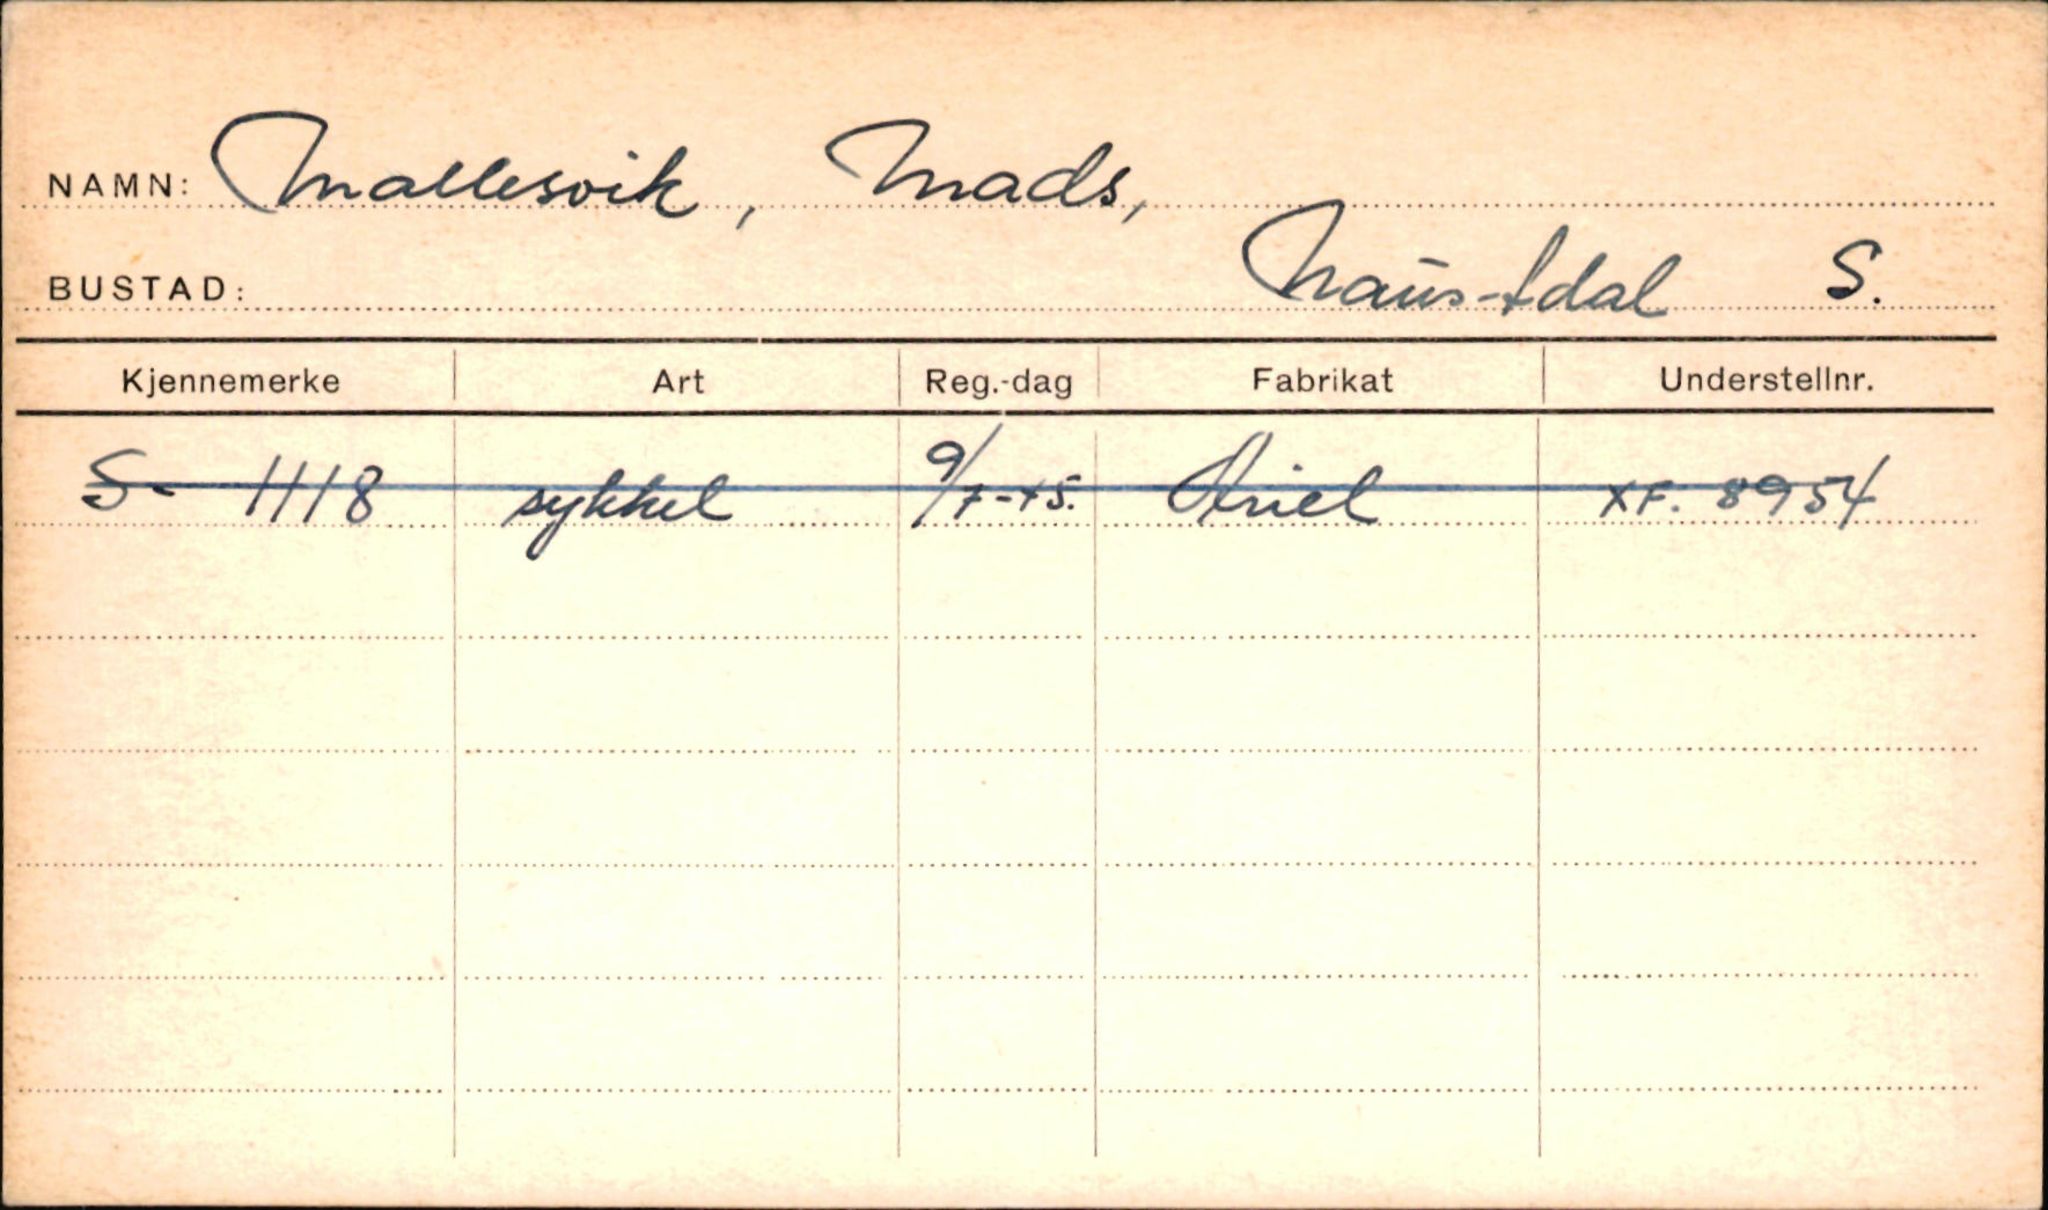 NAMN: Mallesvik, Mads,
BUSTAD: Naustdal S.
Kjennemerke Art Reg.-dag Fabrikat Understellnr.
S- 1118 sykkel 9/7-45. Ariel XF. 8954